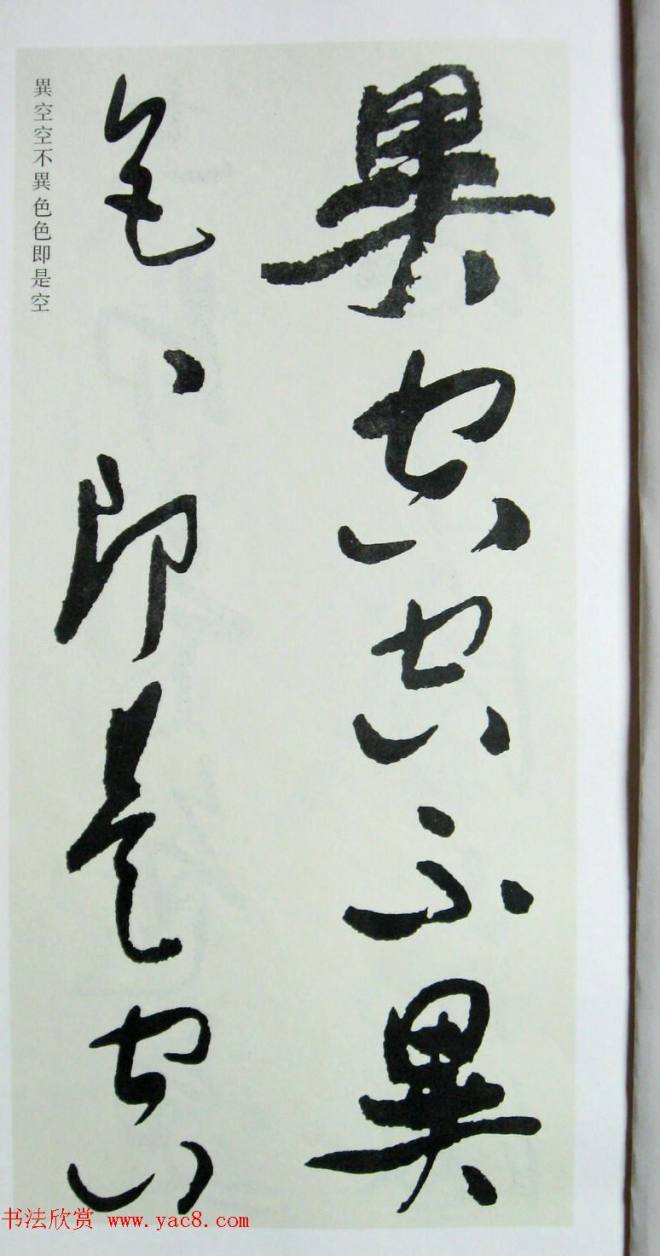 異空空不異
色々即是空
異空空不異色色即是空
书法欣赏 www.yac8.com